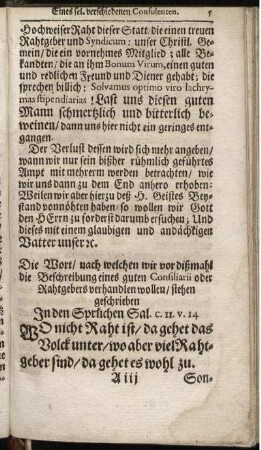 Eines sel. verschiedenen Consulenten. 5
Hochweiser Raht dieser Statt/ die einen treuen
Rahtgeber und Syndicum: unser Christl. Ge-
mein/ die ein vornehmes Mitglied; alle Be-
kandten/ die an ihm Bonum Virum, einen guten
und redlichen Freund und Diener gehabt; die
sprechen billich: Solvamus optimo viro lachry-
mas stipendiarias! Last uns diesen guten
Mann schmertzlich und bitterlich be-
weinen/ dann uns hier nicht ein geringes ent-
gangen.
Der Verlust dessen wird sich mehr angeben/
wann wir nur sein bißher rühmlich geführtes
Ampt mit mehrerm werden betrachten/ wie
wir uns dann zu dem End anhero erhoben:
Weilen wir aber hierzu deß H. Geistes Bey-
stand vonnöhten haben/ so wollen wir Gott
den HErrn zu forderst darumb ersuchen; Und
dieses mit einem glaubigen und andächtigen
Vatter unser ꝛc.
Die Wort/ nach welchen wir vor dißmahl
die Beschreibung eines guten Consiliarii oder
Rahtgebers verhandlen wollen/ stehen
geschrieben
In den Sprüchen Sal. c. 11. v. 14
WO nicht Raht ist/ da gehet das
Volck unter/ wo aber viel Raht-
geber sind/ da gehet es wohl zu.
A iij Son-